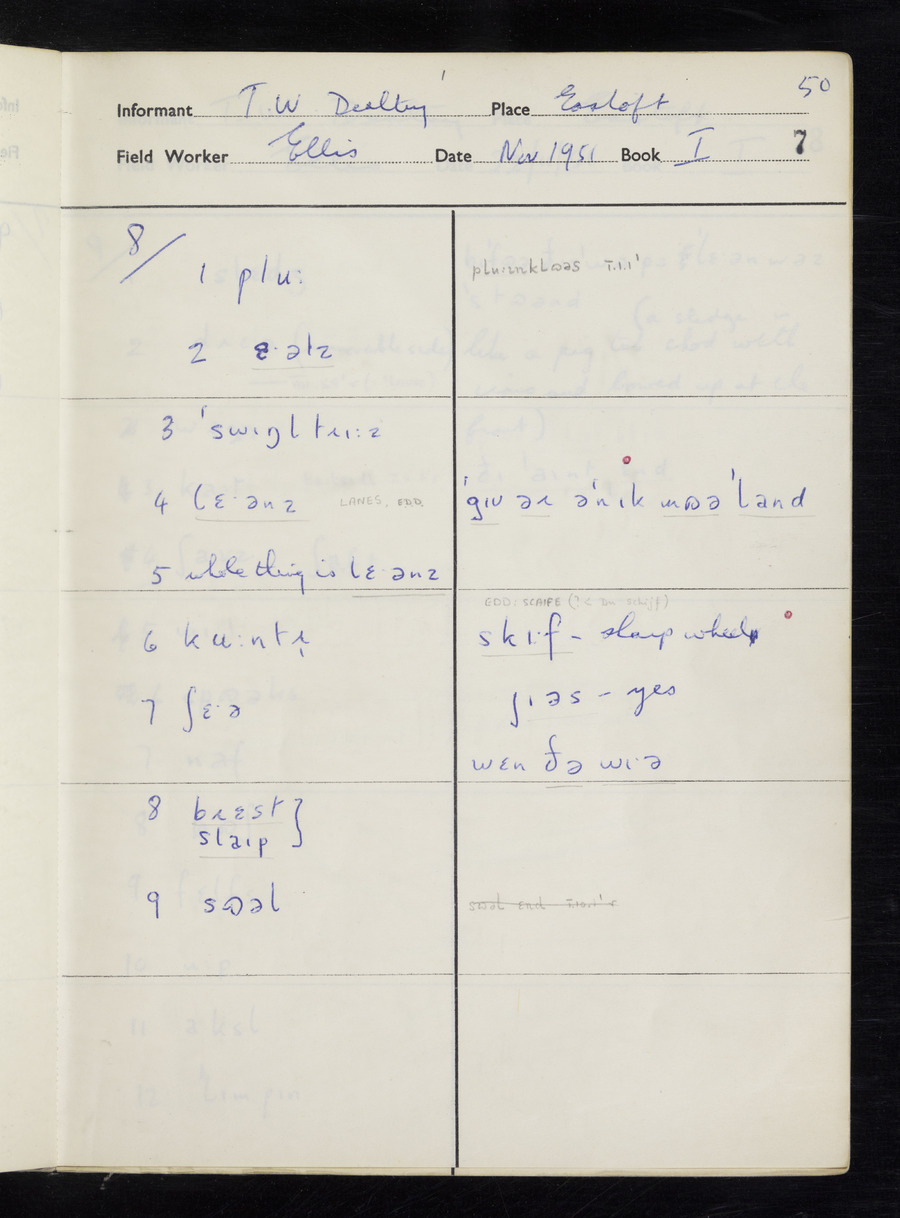 50
Informant T.W Dealtry Place Eastoft
Field Worker Ellis Date Nov 1951 Book I 7
8/
1 pluː
pluːznklɒəs I.1.1'
2 ɛˑəlz
3 ˈswɪŋl tɹɪːz
4 lɛˑənz LANES, EDD.
ˈgɪv əɹ əˈnɪk mɒə ˈland
5 whole thing is lɛˑənz
EDD: SCAIFE (? < Du schijf)
6 kuːntɹ̩
skɪːf – sharp wheel
7 ʃɛˑə
ʃɪəs – yes
wɛn ðə wɪˑə
8 bɹɛst }
slaɪp
9 sɒəl
sɒəl ɛnd